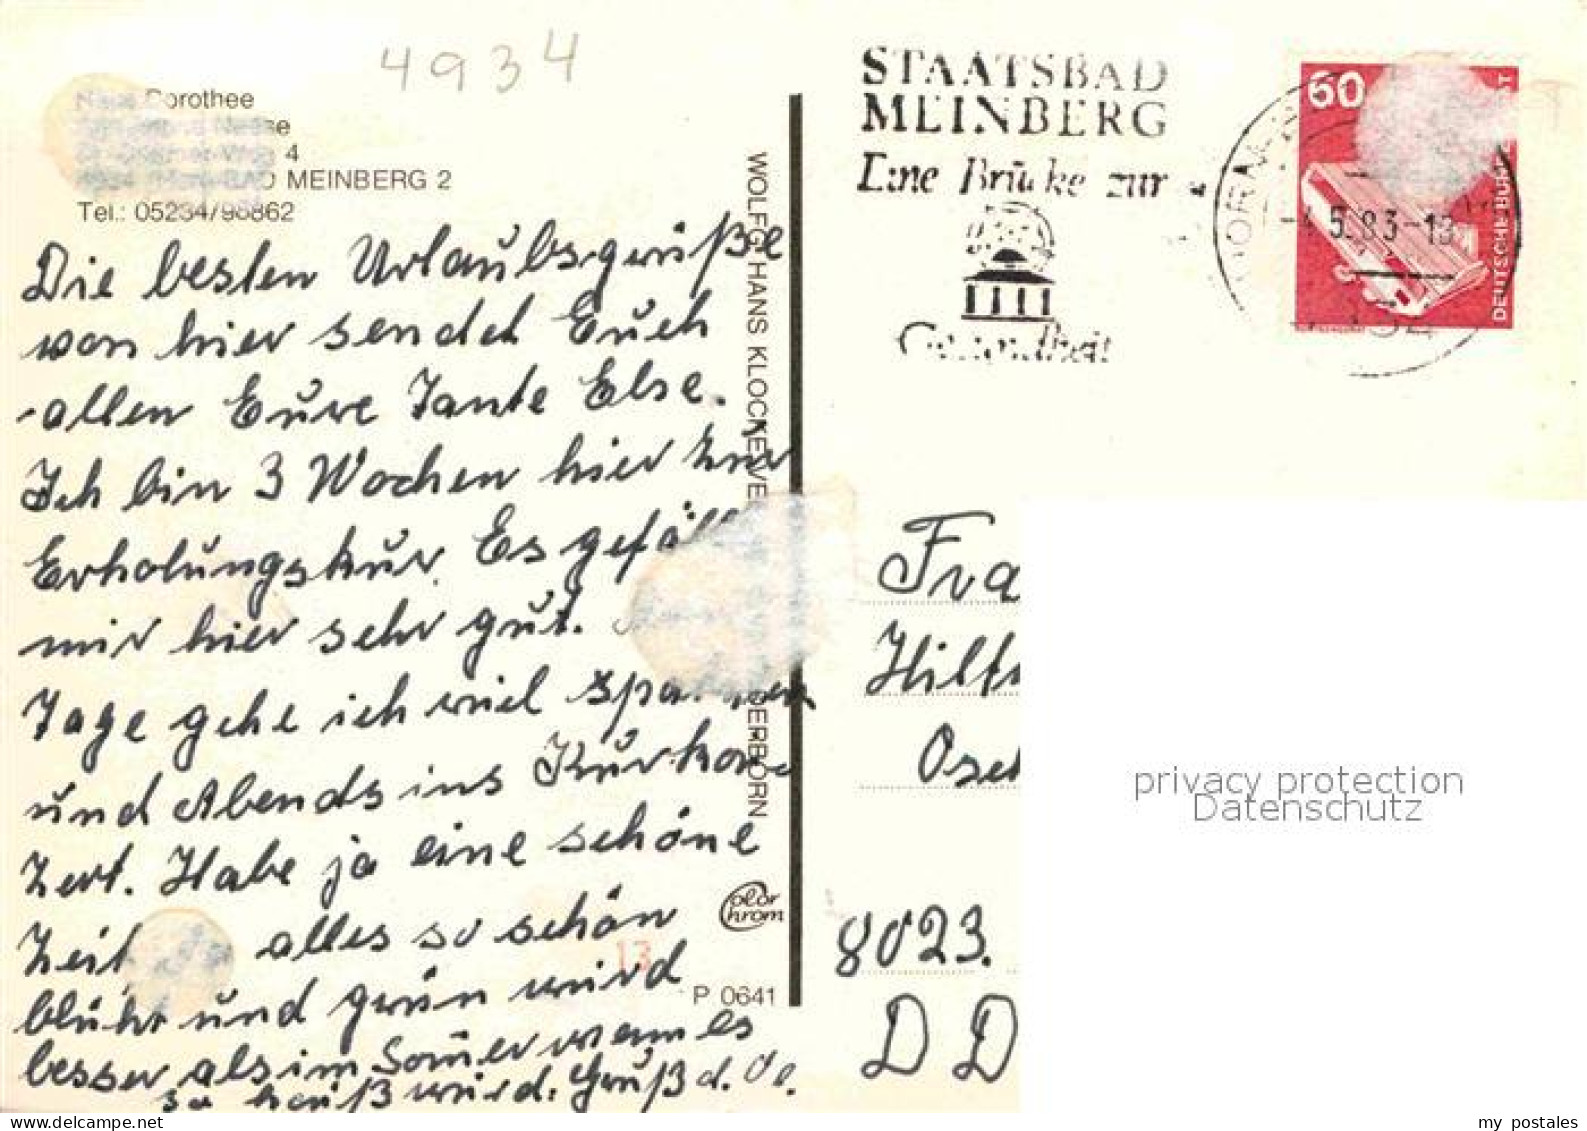 4934
Dorothee
4
MEINBERG 2
Tel.: 05234/98862
Die besten Urlaubsgrüße
von hier sendet Euch
allen Eure Tante Else.
Ich bin 3 Wochen hier zur
Erholungskur. Es gefäll
mir hier sehr gut.
Tage gehe ich viel
und Abends ins Kurkon-
zert. Habe ja eine schöne
Zeit alles so schön
blüht und grün wird
besser als im Somer wenn es
so heiß wird. Gruß d. O.
WOLFG HANS KLOCKE VE
DERBORN
Color Chrom
13
P 0641
STAATSBAD
MEINBERG
Eine Brücke zur
Gesundheit
60
DEUTSCHE BUN
5.83-18
Fra
Hilf
Osch
8023.
DD
privacy protection
Datenschutz
my postales